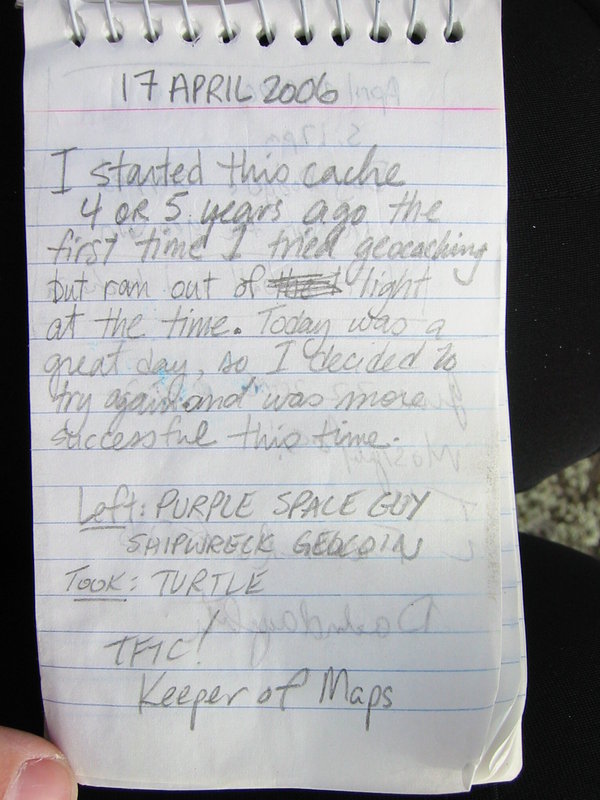 17 APRIL 2006
I started this cache
4 OR 5 years ago the
first time I tried geocaching
but ran out of light
at the time. Today was a
great day, so I decided to
try again and was more
successful this time.
Left: PURPLE SPACE GUY
SHIPWRECK GEOCOIN
TOOK: TURTLE
TFTC!
Keeper of Maps